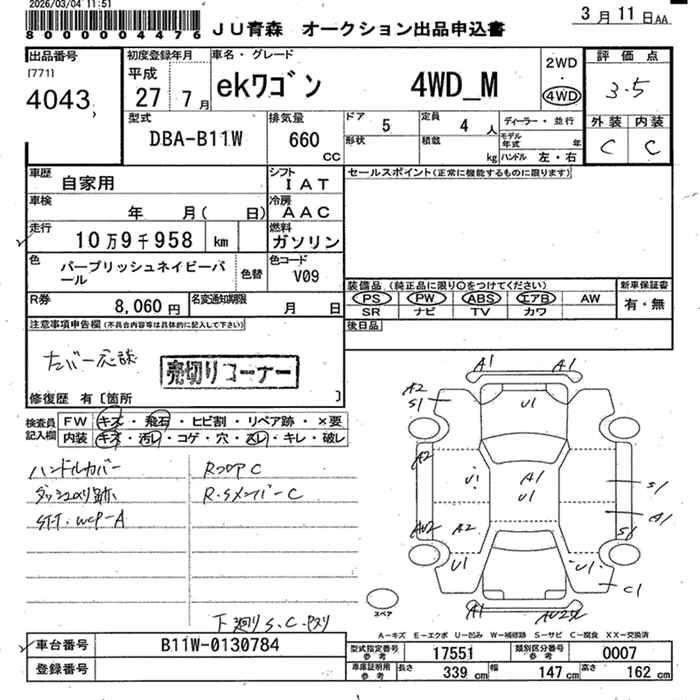 2026/03/04 11:51
3月11日AA
8000004476 JU青森 オークション出品申込書
出品番号 初度登録年月 車名・グレード 2WD 評価点
[771] 平成 ekワゴン 4WD_M ・ 3.5
4043 27 7月 4WD
型式 排気量 ドア 定員 ディーラー・並行 外装 内装
DBA-B11W 660 5 4人 モデル年式 年 C C
cc 形状 積載 kg ハンドル 左・右
車歴 自家用 シフト IAT セールスポイント(正常に機能するものに限ります)
車検 年 月( 日) 冷房 AAC
走行 10万9千958 km 燃料 ガソリン
色 パープリッシュネイビーパール 色替 色コード V09
装備品 (純正品に限り○をつけてください) 新車保証書
PS PW ABS エアB AW 有・無
R券 8,060円 名変通知期限 月 日 SR ナビ TV カワ
注意事項申告欄(不具合内容等は具体的に記入して下さい) 後日品
タバー応談
売切りコーナー
修復歴 有〔箇所 〕
検査員記入欄 FW キズ・飛石・ヒビ割・リペア跡・×要
内装 キズ・汚レ・コゲ・穴・スレ・キレ・破レ
ハンドルカバー RコアC
ダッシュのり跡 R.SメンバーC
ST-T.WCP-A
下廻りS.C.
A1 A1
A2
S1 U1
A2 U1 A1 S1
U1 A1
AU2 A2 S1
U1 U1
C1
スペア A1 AU2
A－キズ E－エクボ U－凹み W－補修跡 S－サビ C－腐食 XX－交換済
車台番号 B11W-0130784 型式指定番号 参考 17551 類別区分番号 参考 0007
登録番号 車庫証明用 参考 長さ 339cm 幅 147cm 高さ 162cm